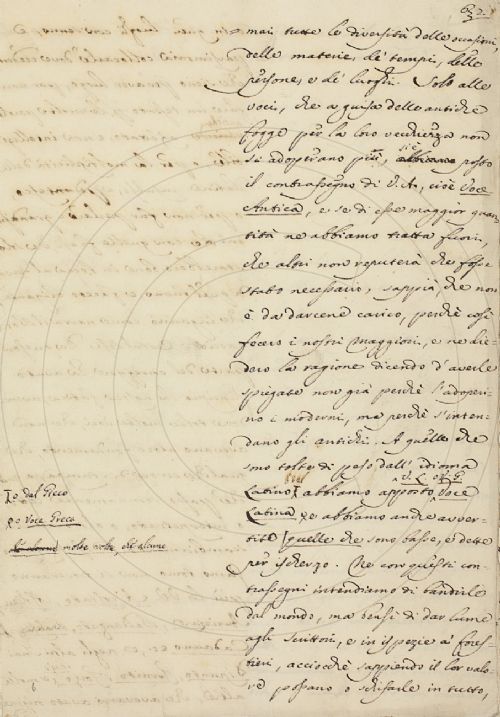 mai tutte le diversità delle occasioni,
delle materie, de' tempi, delle
persone, e de' luoghi. Solo alle
voci, che a guisa delle antiche
fogge per la loro vecchiezza non
si adoperano più, abbiamo si è posto
il contrassegno di V.A. cioè Voce
Antica, e se di esse maggior quan
tità ne abbiamo tratta fuori,
che altri non reputerà che fosse
stato necessario, sappia che non
è da darcene carico, perchè così
fecero i nostri Maggiori, e ne die-
dero la ragione dicendo d'averle
spiegate non già perchè l'adoperi-
no i moderni, ma perchè s'inten-
dano gli antichi. A quelle che
sono tolte di peso dall'idioma
Latino abbiamo apposto V. L. o V. G. Voce
Latina e abbiamo anche avver-
tite quelle che sono basse, e dette
per ischerzo. Nè con questi con-
trassegni intendiamo di bandirle
dal mondo, ma bensì di dar lume
agli scrittori, e in ispezie a' fores-
tieri, acciocchè sappiendo il lor valo-
re possano o schifarle in tutto,
o dal Greco
o Voce Greca
molte volte, che alcune